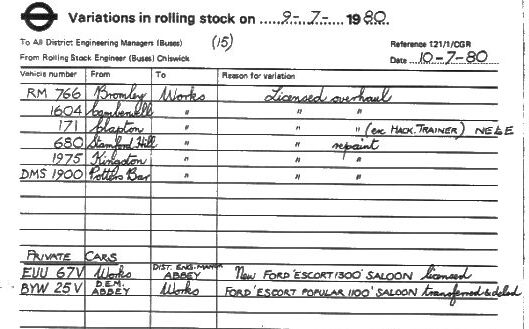 Variations in rolling stock on 9-7- 1980
To All District Engineering Managers (Buses) (15) Reference 121/1/CGR
From Rolling Stock Engineer (Buses) Chiswick Date 10-7-80
Vehicle number From To Reason for variation
RM 766 Bromley Works Licensed overhaul
1604 Camberwell " " "
171 Clapton " " " (ex HACK. TRAINER)
680 Stamford Hill " " repaint
1975 Kingston " " "
DMS 1900 Potters Bar " " "
PRIVATE CARS
EUU 67V Works DIST. ENG. ABBEY New FORD 'ESCORT 1300' SALOON licensed
BYW 25V D.E.M. ABBEY Works FORD 'ESCORT POPULAR 1100' SALOON transferred & delsd